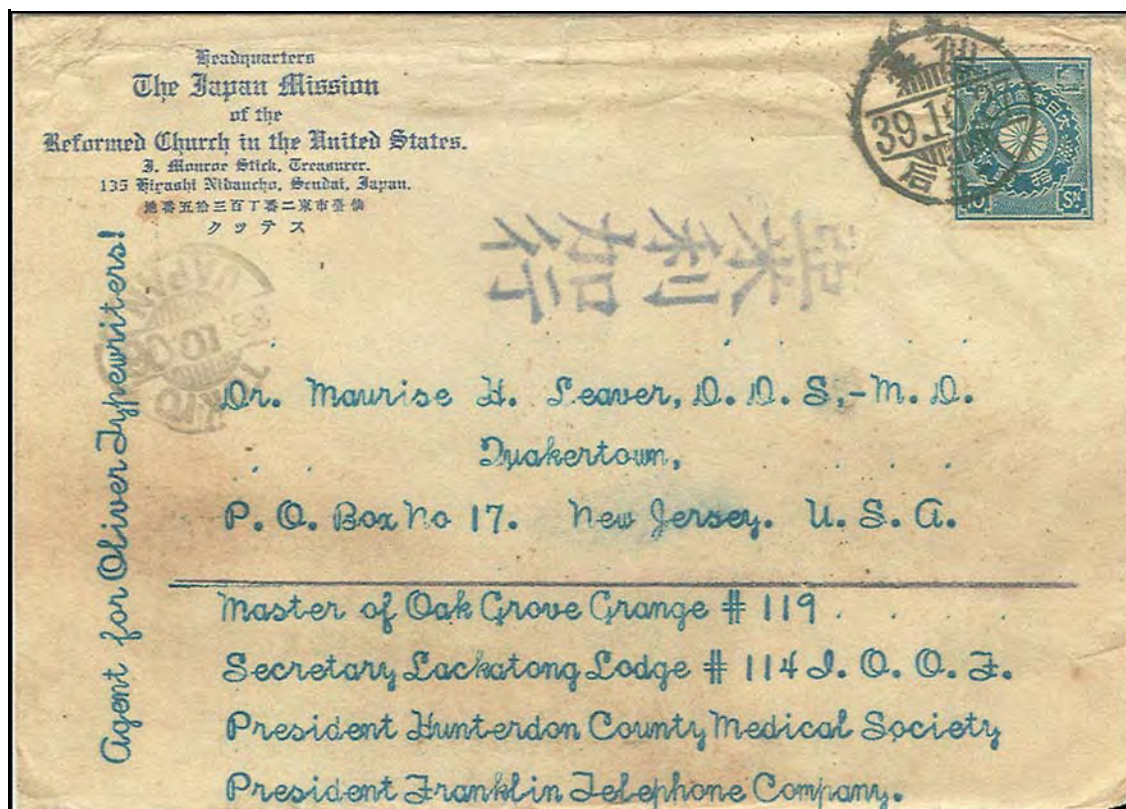 Headquarters
The Japan Mission
of the
Reformed Church in the United States.
J. Monroe Stick, Treasurer.
135 Higashi Nibancho, Sendai, Japan.
仙臺市東二番丁百三拾五番地
ステック
仙臺
10 Sn
亞米利加行
JAPAN
Agent for Oliver Typewriters!
Dr. Maurise H. Leaver, D. D. S,- M. D.
Quakertown,
P. O. Box No 17. New Jersey. U. S. A.
Master of Oak Grove Grange # 119
Secretary Lackatong Lodge # 114 I. O. O. F.
President Hunterdon County Medical Society
President Franklin Telephone Company.